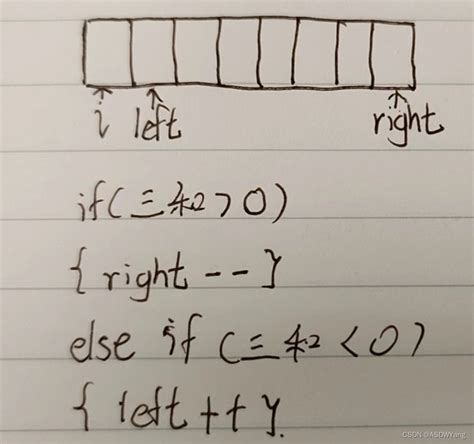 i left right
if(三和>0)
{ right -- }
else if (三和<0)
{ left ++ }.
CSDN @ASDWYang